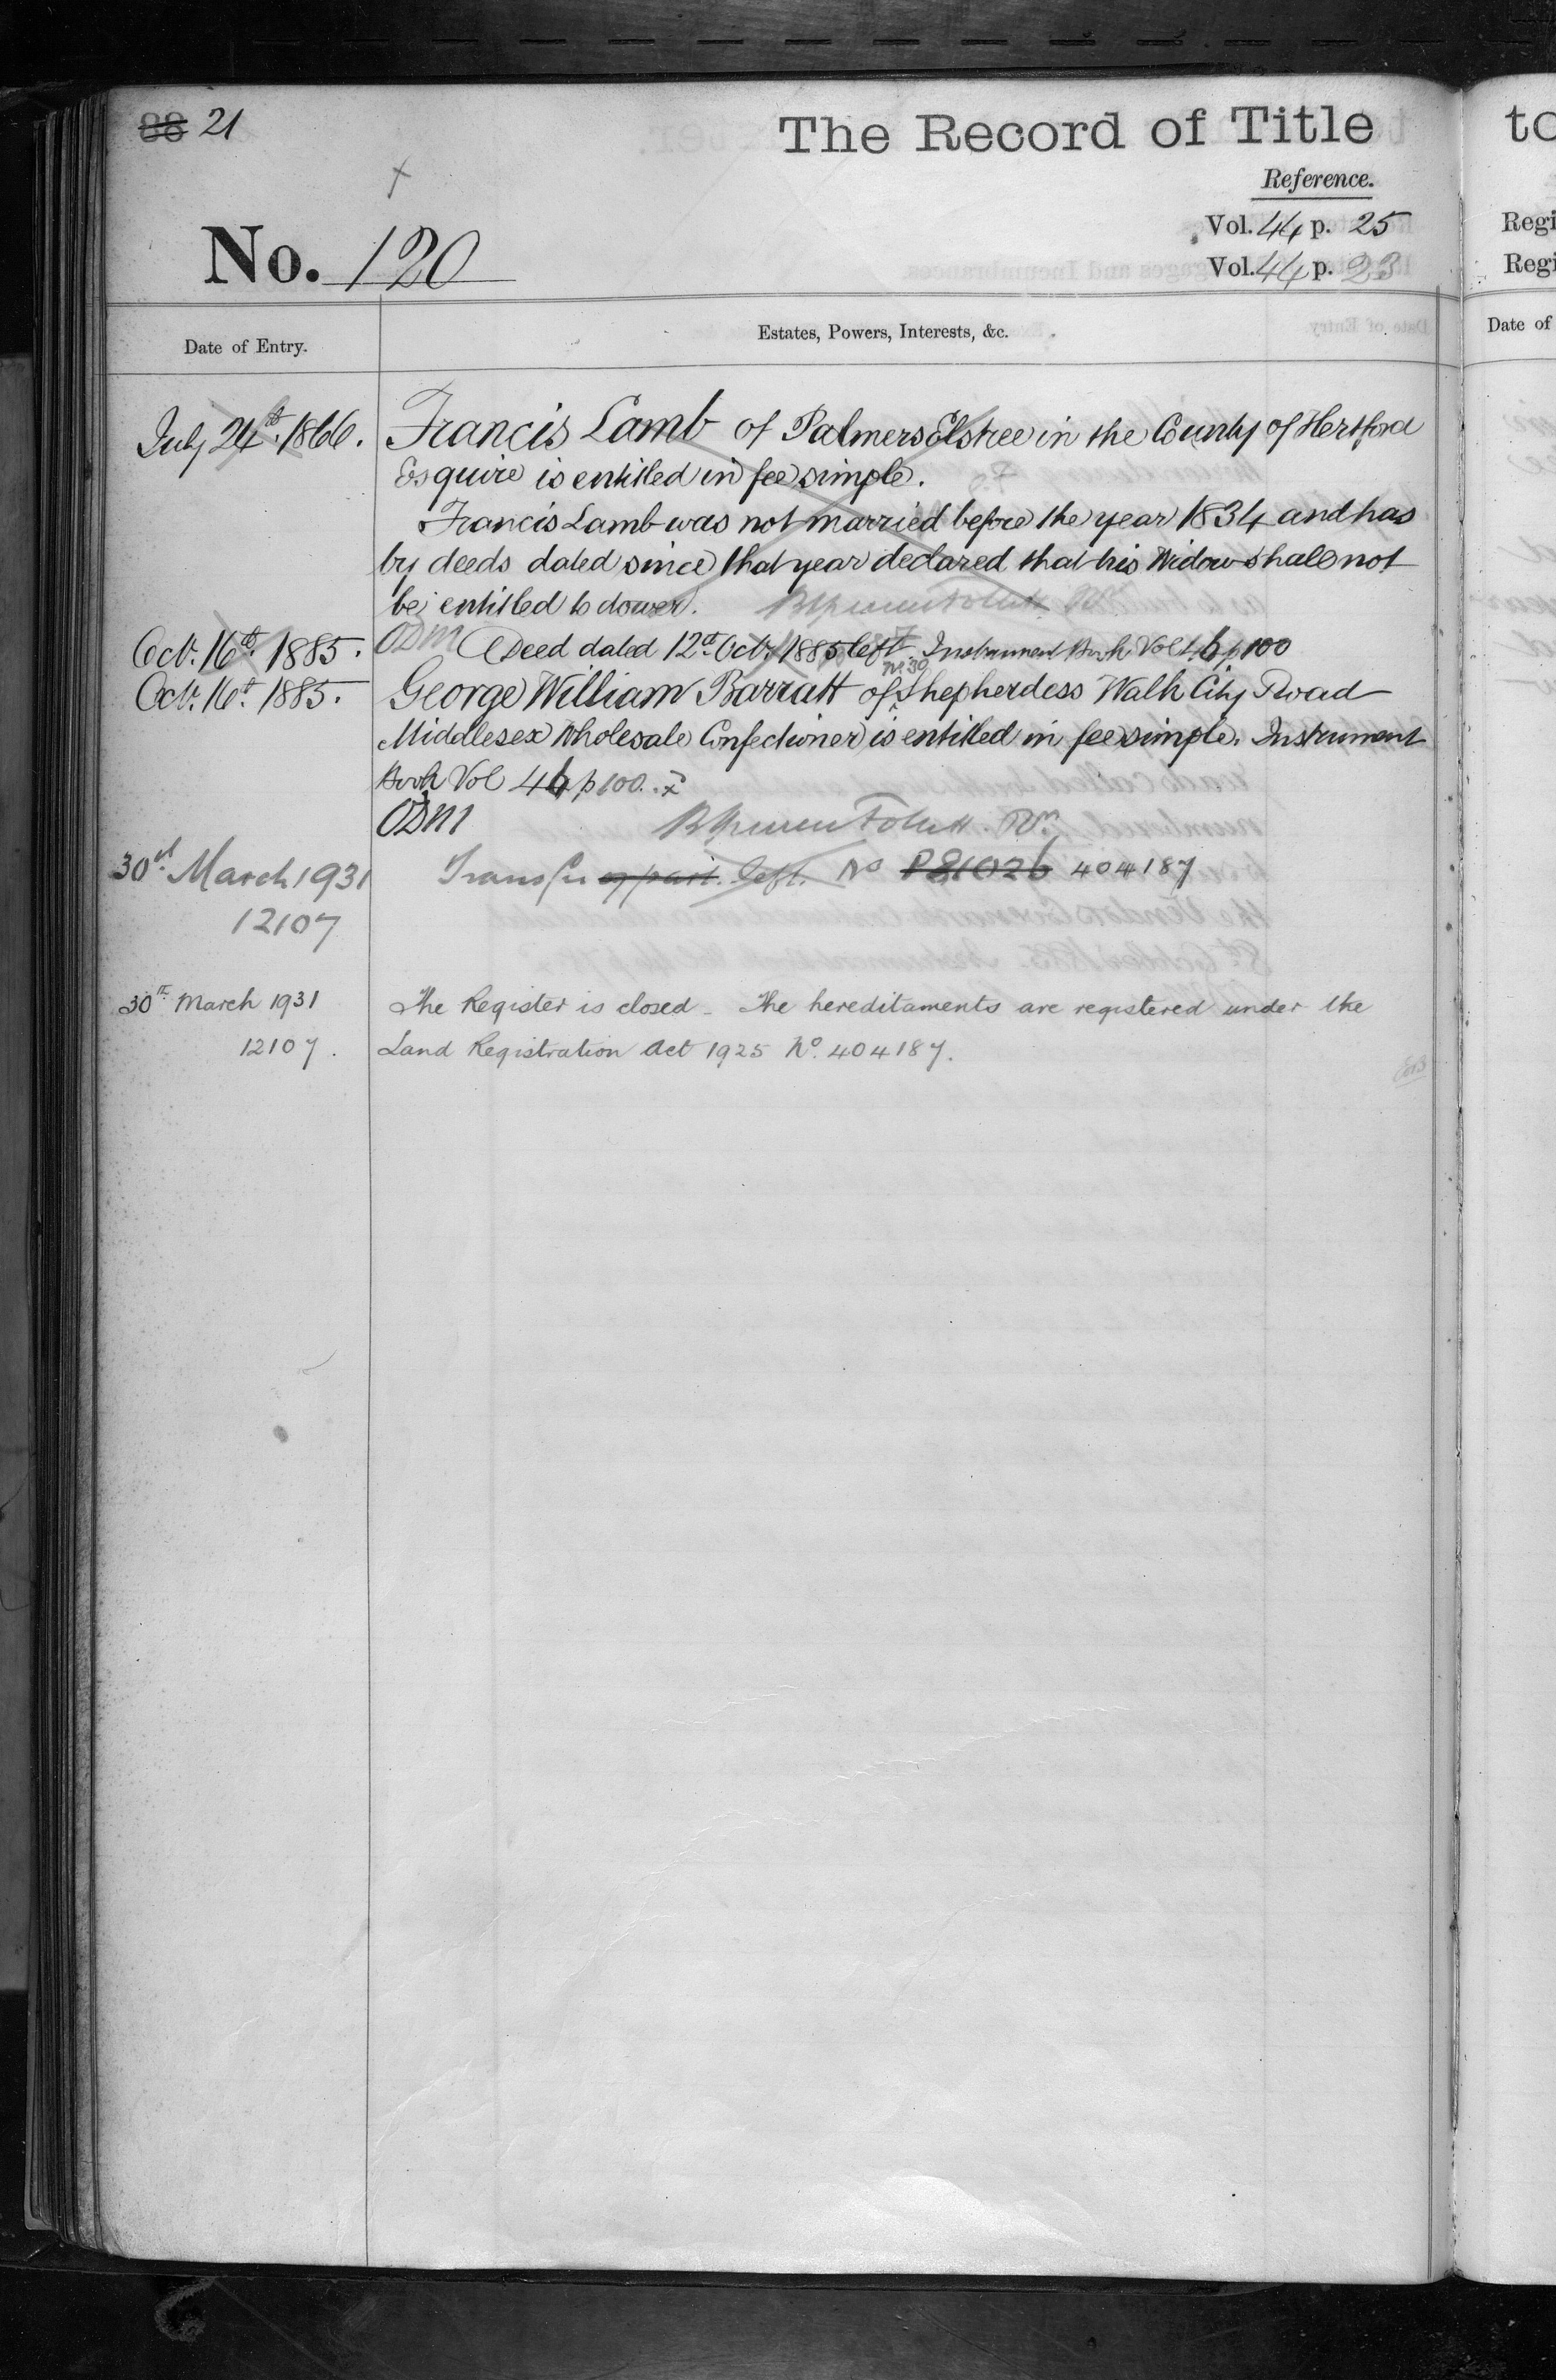 88 21
The Record of Title
Reference.
Vol. 44 p. 25
Vol. 44 p. 23
No. 120
Date of Entry.
Estates, Powers, Interests, &c.
July 24th. 1866. Francis Lamb of Palmers Elstree in the County of Hertford
Esquire is entitled in fee simple.
Francis Lamb was not married before the year 1834 and has
by deeds dated since that year declared that his Widow shall not
be entitled to dower.
Oct. 16th. 1885. ODM Deed dated 12th. Oct. 1885 left. Instrument Book Vol 46 p 100
Oct. 16th. 1885. George William Barratt of No. 30 Shepherdess Walk City Road
Middlesex Wholesale Confectioner is entitled in fee simple. Instrument
Book Vol 46 p 100.
ODM
30th March 1931 Transfer of part left. No P81026 404187
12107
30th March 1931 The Register is closed - The hereditaments are registered under the
12107. Land Registration Act 1925 No. 404187.
to
Regi
Regi
Date of